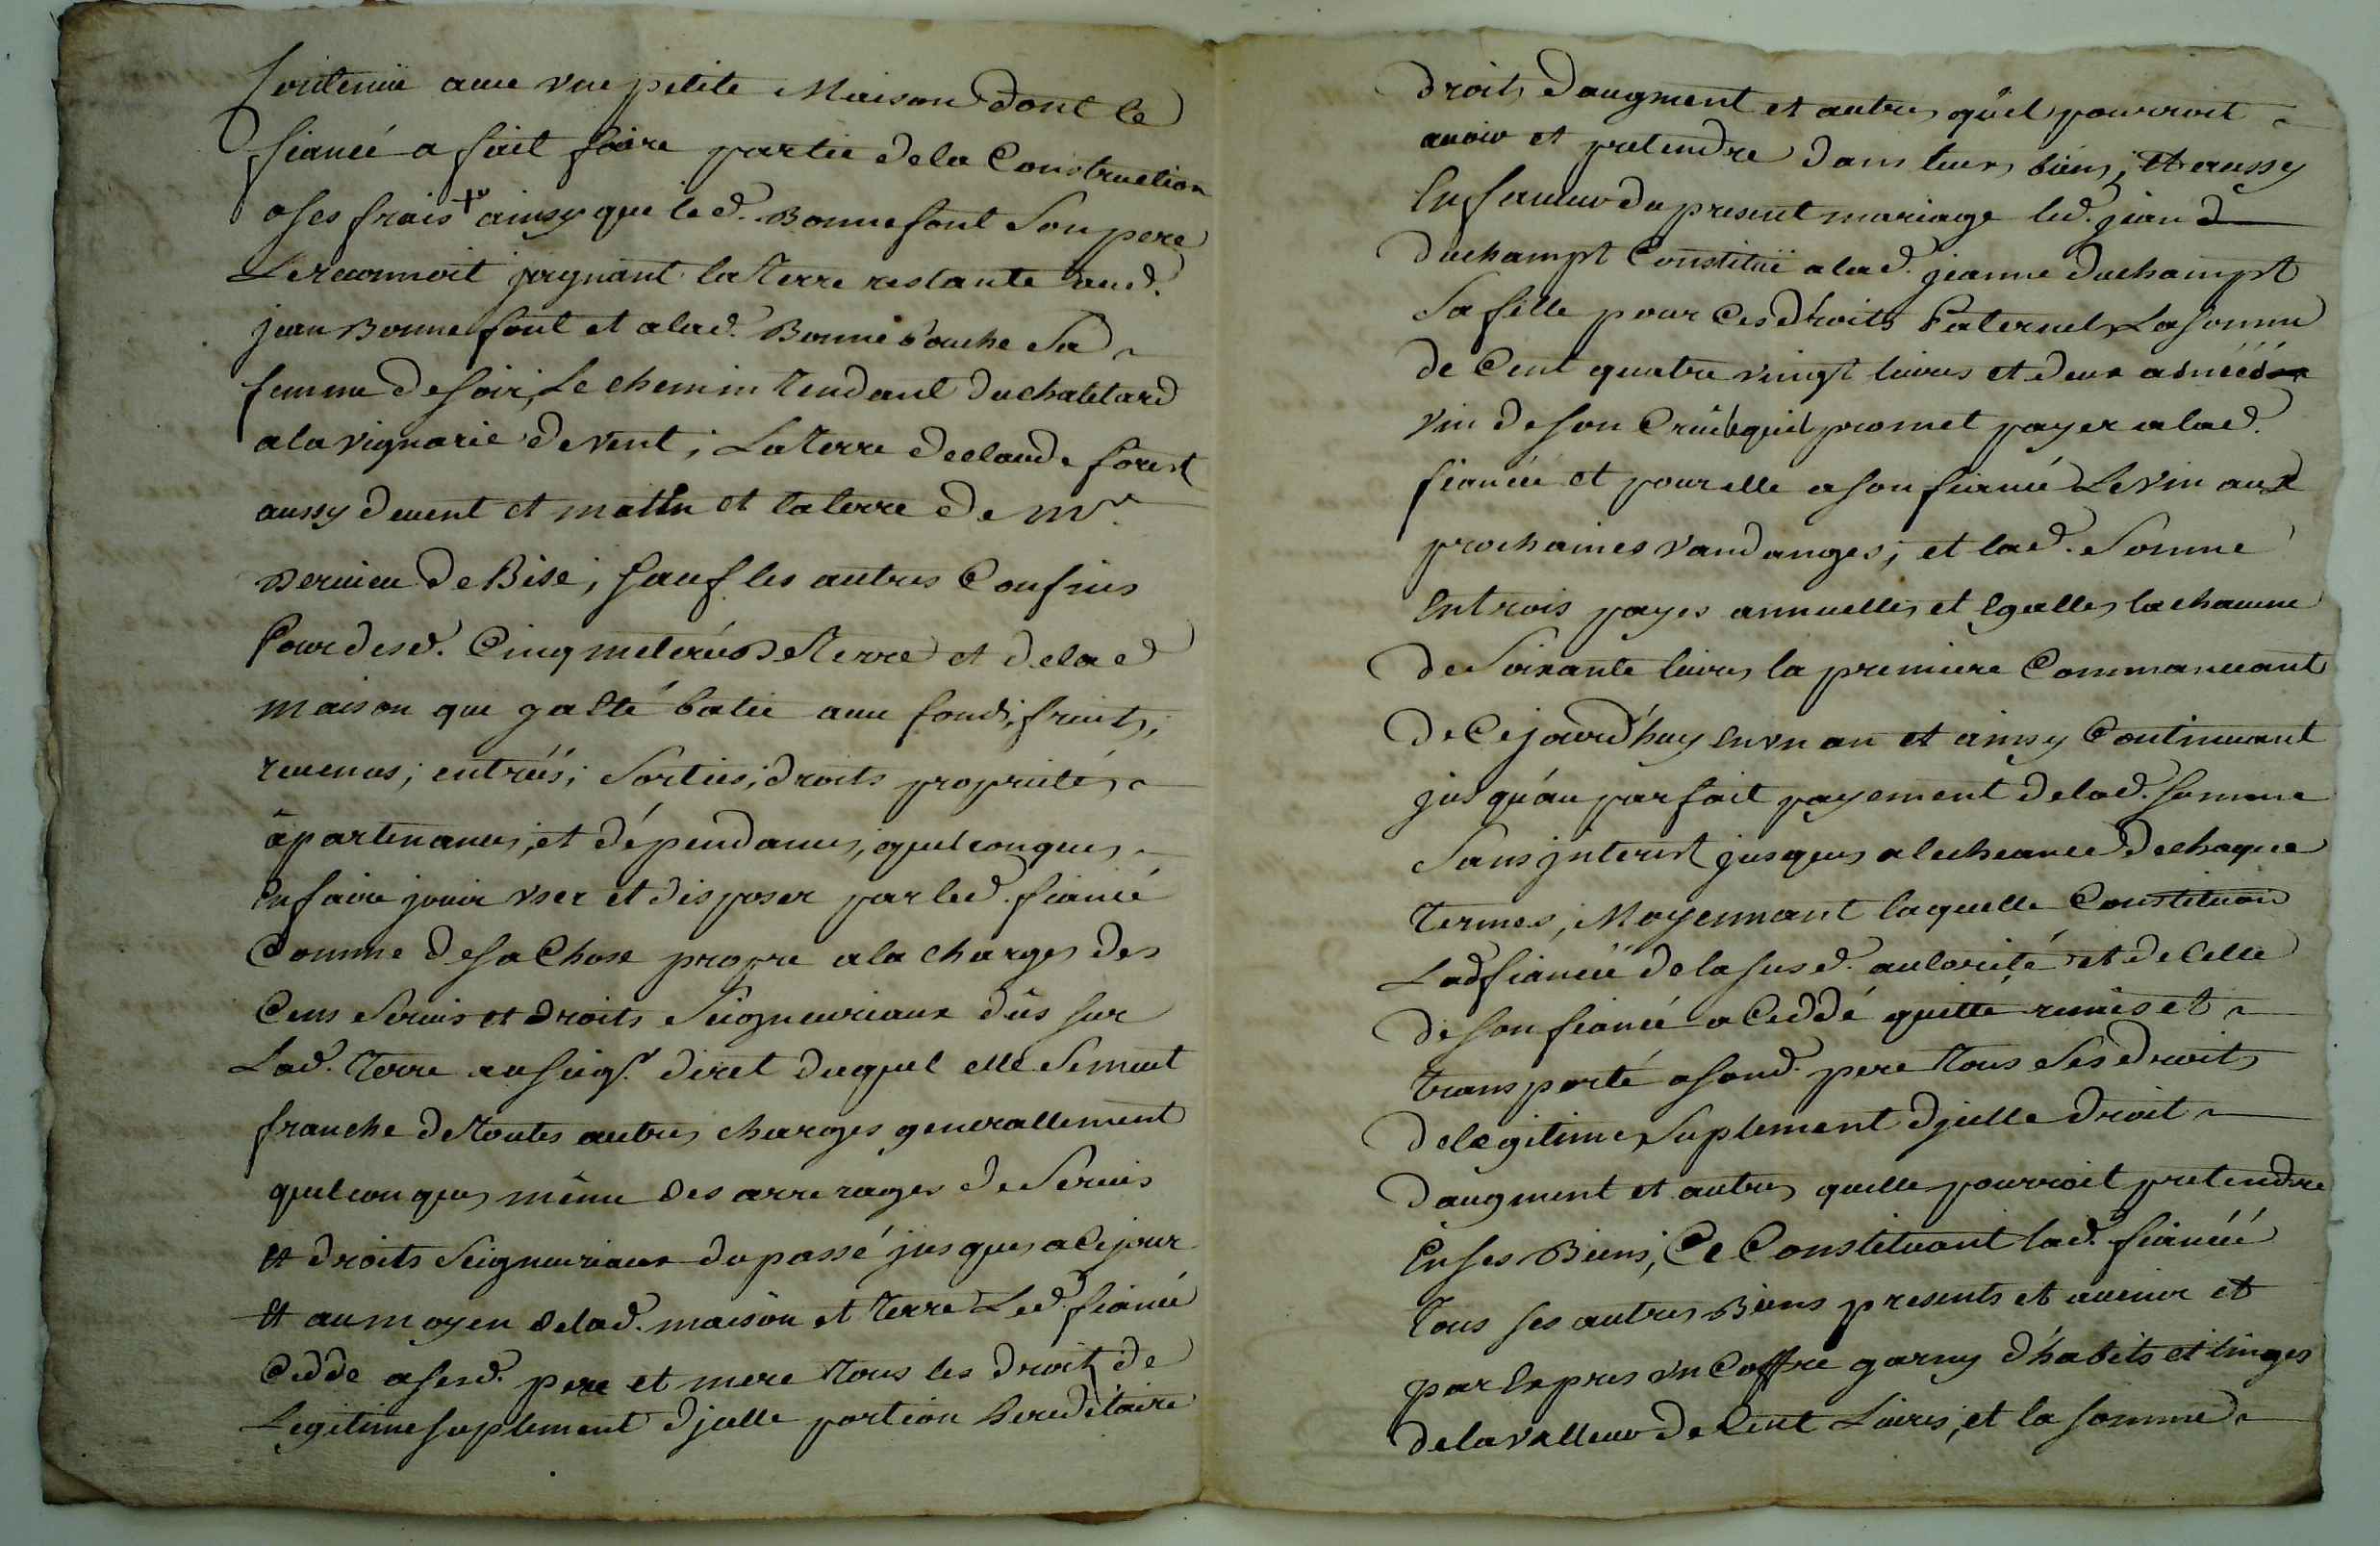 Contenuë avec vne petite Maison dont le
fiancé a fait faire partie de la Construction
a ses frais + ainsy que led. Bonnefont Son pere
Le reconnoit joignant la Terre restante aud.
jean Bonnefont et a lad. Bonne bouche Sa
femme de soir, Le chemin Tendant du chatelard
a la vignarie de vent; La Terre de claude forest
aussy de vent et matin et la terre de mr.
dervieu de Bise; Sauf les autres Confins
Pour desd. Cinq meterées de Terre et de lad
maison que y a Eté batie avec fonds, fruits,
revenus; entrées; Sorties; droits proprietés
apartenances, et dépendances, quelconques
En faire jouir vser et disposer par led. fiancé
Comme de sa Chose propre a la charges des
Cens Servis et droits Seigneuriaux dûs sur
Lad. Terre au seigr. diret duquel elle Se meut
franche de Toutes autres charges generallement
quelconques même des arrerages de Servis
Et droits Seigneuriaux du passé jusques a Ce jour
Et au moyen de lad. maison et Terre Led. fiancé
Cedde a sesd. pere et mere Tous les droits de
Legitime suplement d'jcelle portion hereditaire
droits daugment et autres qu'il pourroit
avoir et pretendre dans leurs biens; Et aussy
En faveur du present mariage led. jean
duchampt Constitüe a lad. jeanne duchampt
Sa fille pour Ces droits Paternels La somme
de Cent quatre vingt livres et deux asnéés
vin de son Crû qu'il promet payer a lad.
fiancée et pour elle a son fiancé Le vin aux
prochaines vandanges; et lad. Somme
En trois payes annuelles et Egalles la chacune
de Soixante livres la premiere Commancant
de Cejourd'huy En vn an et ainsy Continuant
jusqu'au parfait payement de lad. Somme
Sans jnterest jusques a lecheance de chaque
Termes, Moyennant laquelle Constitution
Lad fiancée de la susd. autorité et de Celle
de son fiancé a Ceddé quitté remis et
Transporté a sond. pere Tous Ses droits
de legitime, Suplement d'jcelle droit
daugment et autres quelle pourroit pretendre
En ses Biens; Ce Constituant lad. fiancéé
Tous ses autres Biens presents et avenir et
par Expres vn Coffre garny d'habits et linges
de la valleur de Cent Livres, et la somme